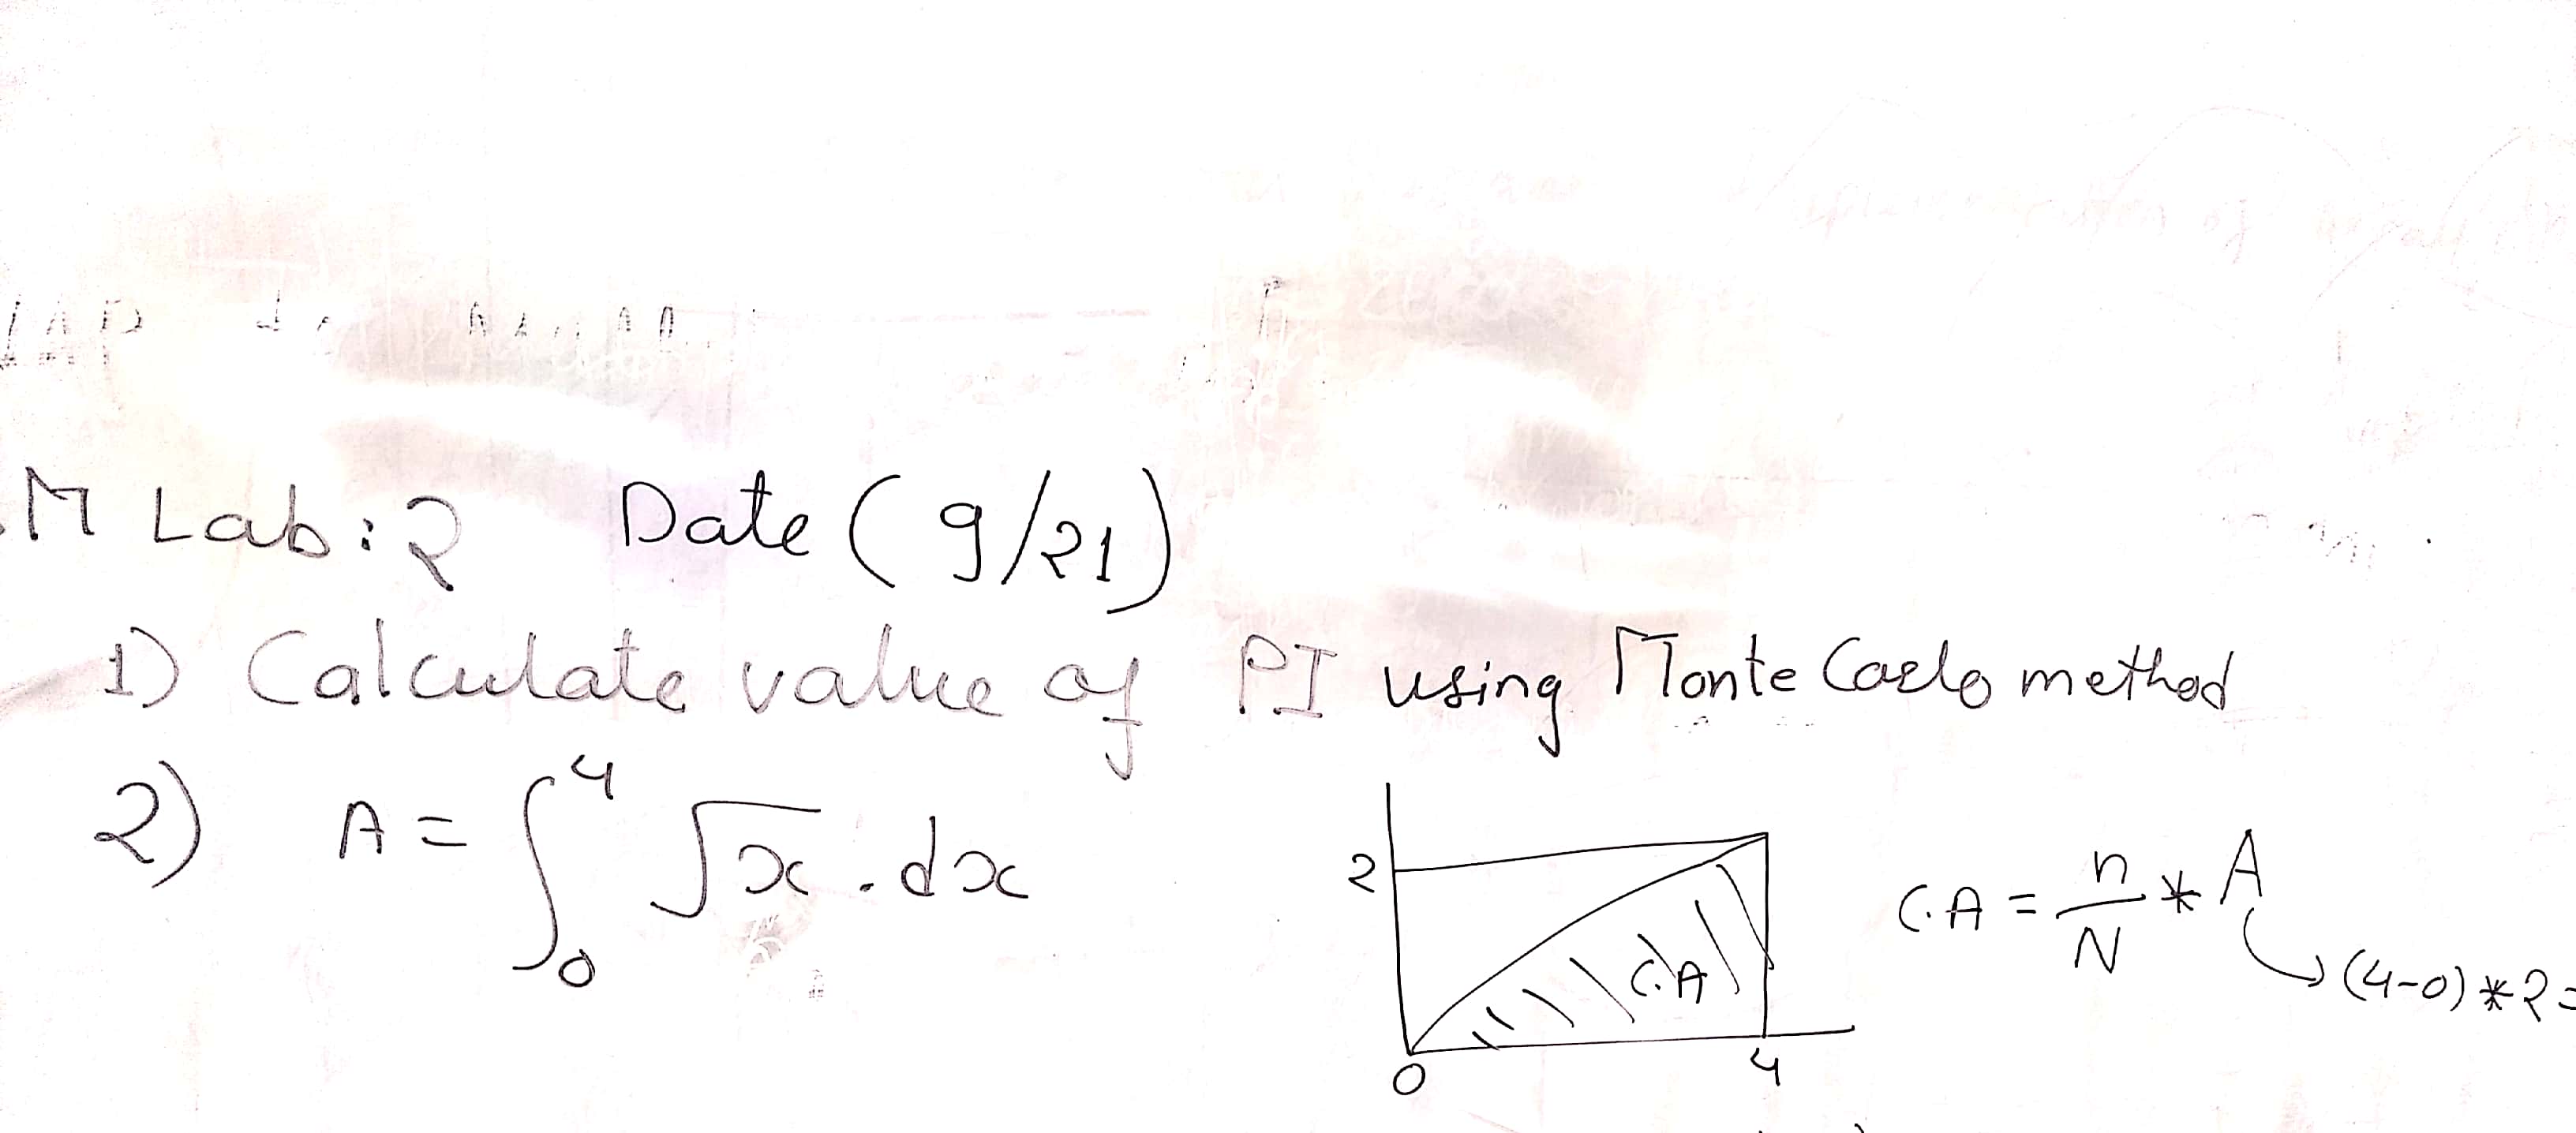 .M Lab:2 Date (9/21)
1) Calculate value of PI using Monte Carlo method
2) A = ∫₀⁴ √x . dx
2
C.A
0
4
C.A = n/N * A
(4-0) * 2 =